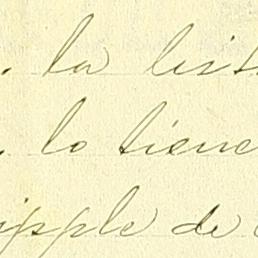 . la list
. lo tiene
ipple de